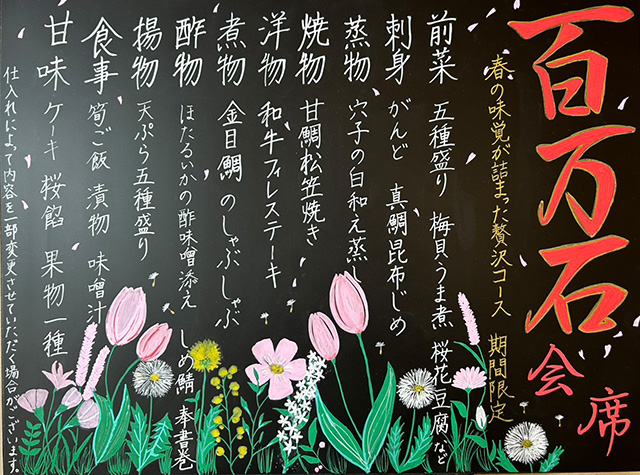 百万石会席
春の味覚が詰まった贅沢コース 期間限定
前菜 五種盛り 梅貝うま煮 桜花豆腐など
刺身 がんど 真鯛昆布じめ
蒸物 穴子の白和え蒸し
焼物 甘鯛松笠焼き
洋物 和牛フィレステーキ
煮物 金目鯛のしゃぶしゃぶ
酢物 ほたるいかの酢味噌添え しめ鯖奉書巻
揚物 天ぷら五種盛り
食事 筍ご飯 漬物 味噌汁
甘味 ケーキ 桜餡 果物一種
仕入れによって内容を一部変更させていただく場合がございます。